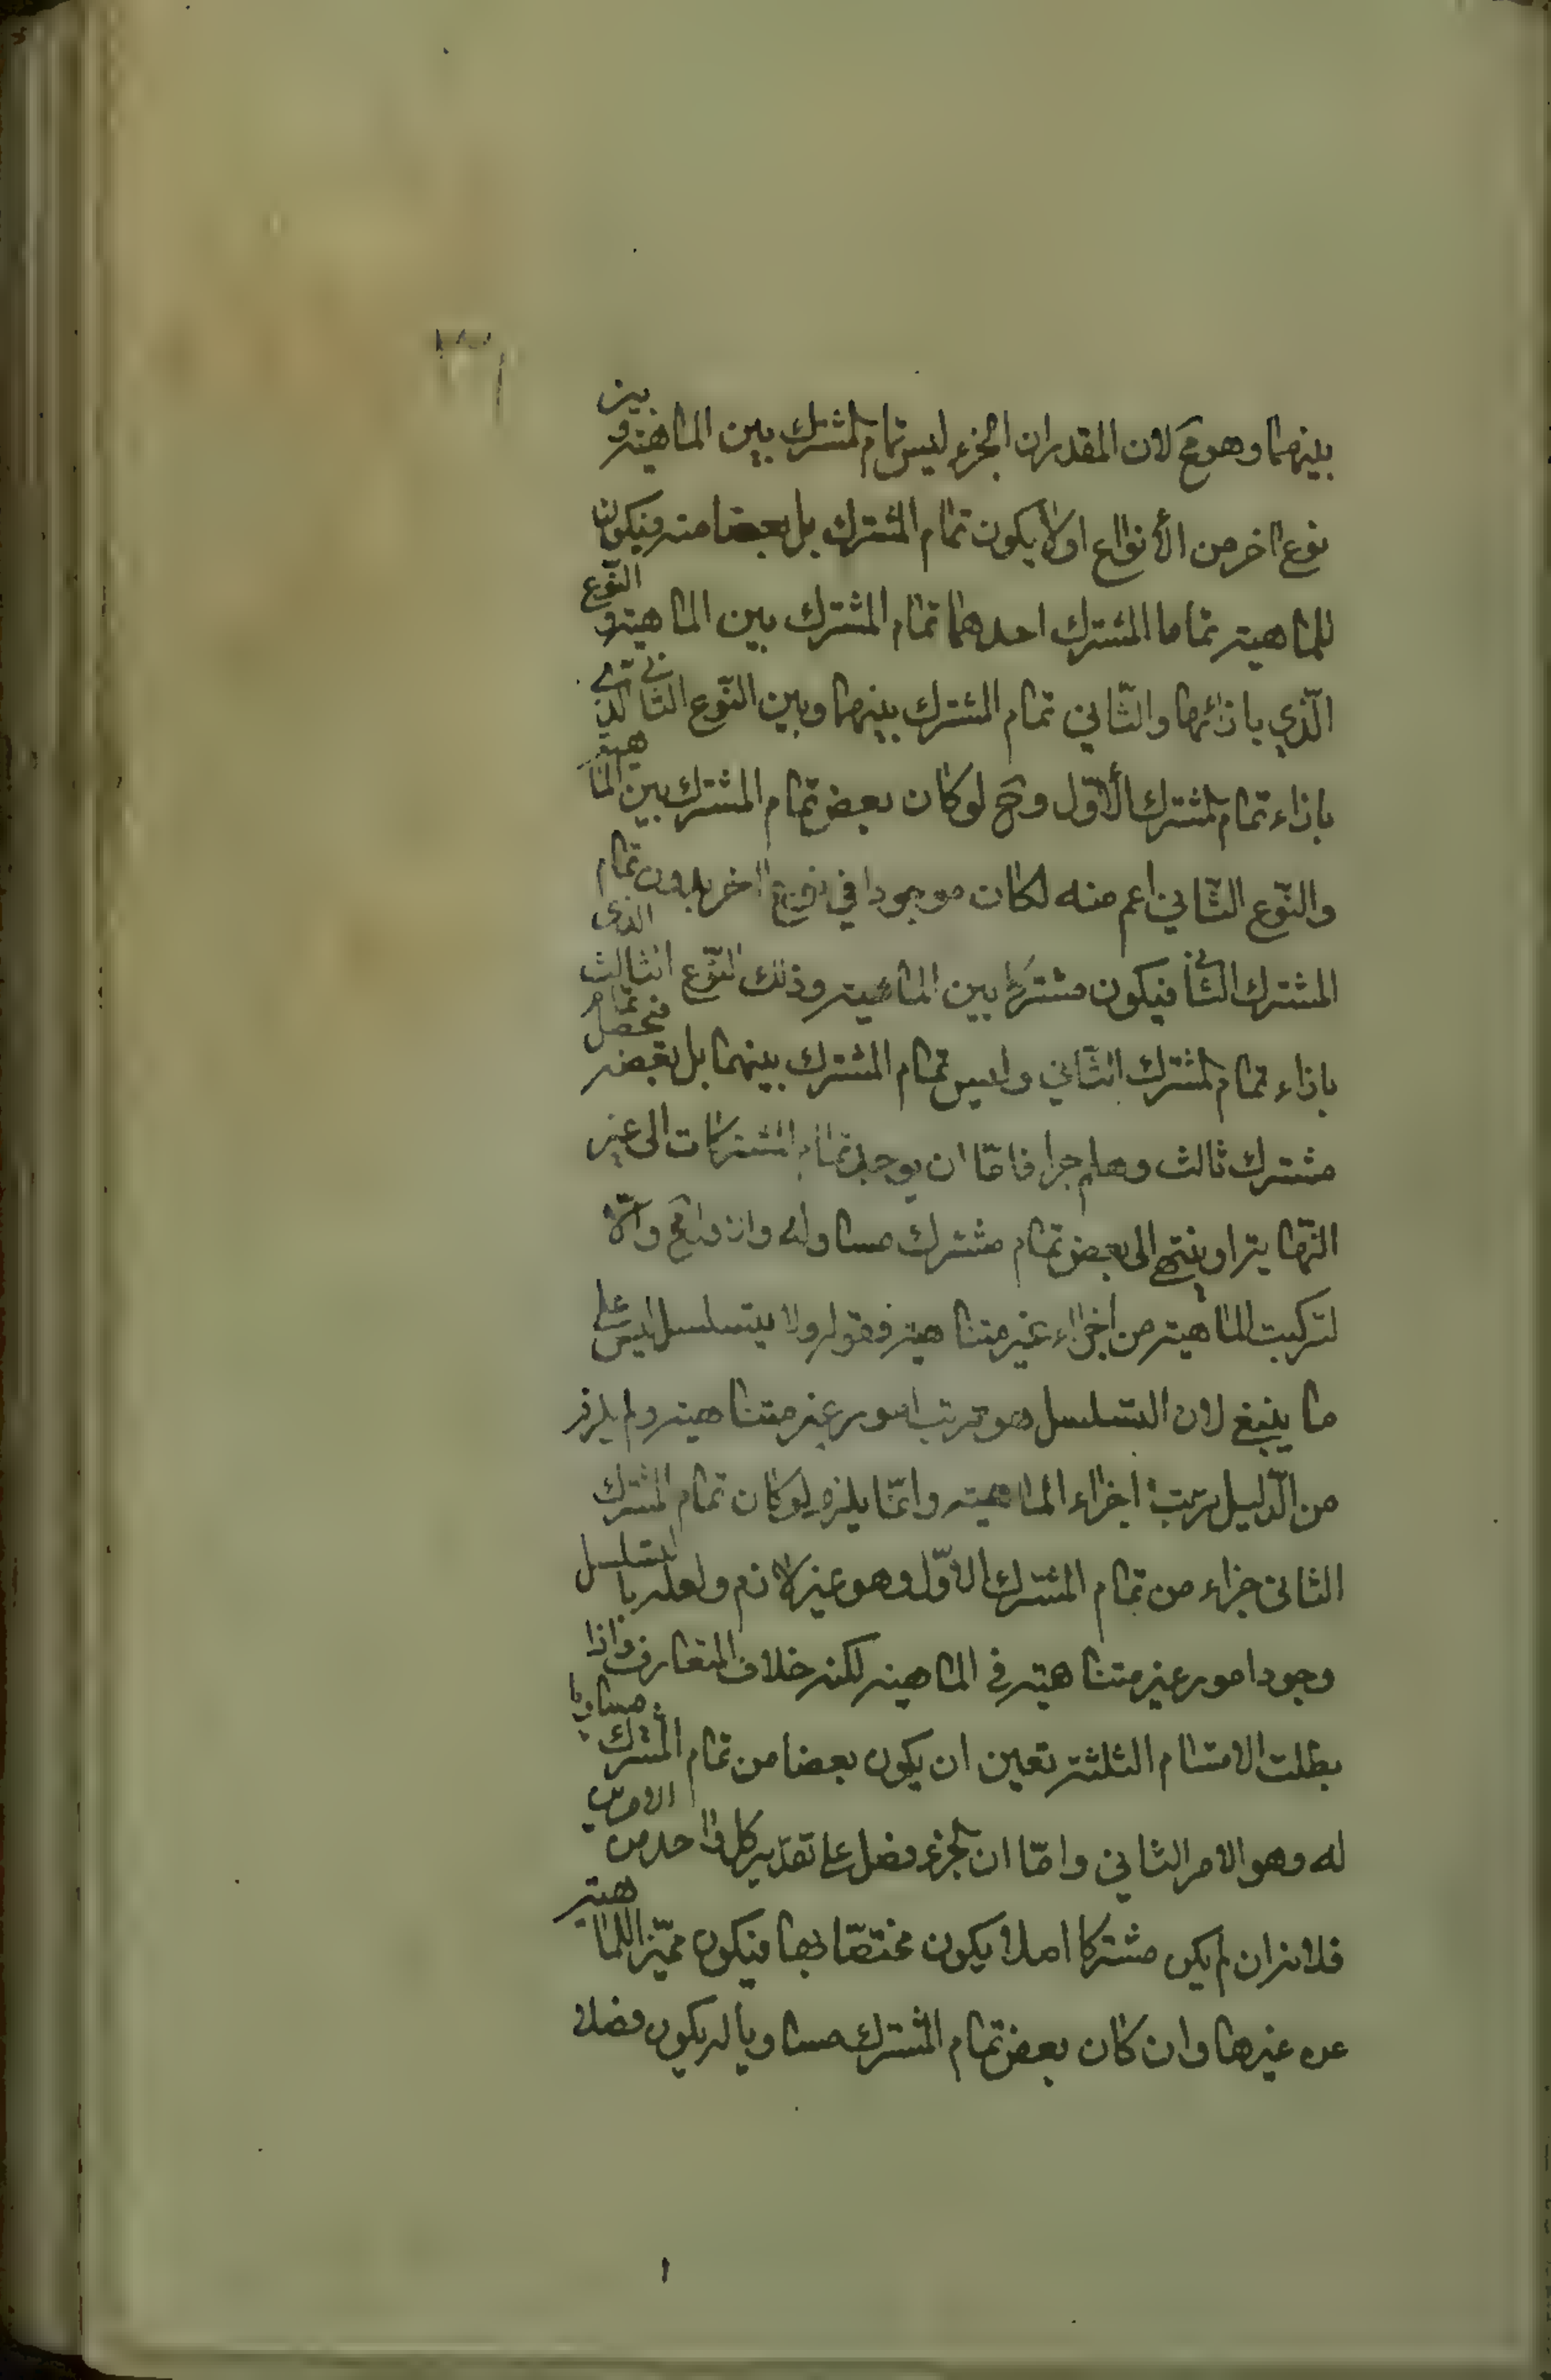 بينهما وهو مح لان المقدر ان الجزء ليس تمام المشترك بين الماهية وبين
نوع اخر من الأنواع اولا يكون تمام المشترك بل بعضا منه فيكون
للماهية تماما المشترك احدهما تمام المشترك بين الماهية والنّوع
الّذي بازائها والثّاني تمام المشترك بينهما وبين النّوع الثاني الذي
بازاء تمام المشترك الأوّل وح لو كان بعض تمام المشترك بين الماهية
والنّوع الثّاني اعم منه لكان موجودا في نوع اخر بدون تمام
المشترك الثاني فيكون مشتركا بين الماهية وذلك النّوع الثالث الذى
بازاء تمام المشترك الثّاني وليس تمام المشترك بينهما بل بعضه فيحصل تمام
مشترك ثالث وهلم جرا فامّا ان يوجد تمام المشتركات الى غير
النّهاية او ينتهي الى بعض تمام مشترك مساو له والاول مح والّا
لتركبت الماهية من اجزاء غير متناهية فقوله ولا يتسلسل ليس على
ما ينبغي لان التسلسل هو ترتب امور غير متناهية ولم يلزم
من الدّليل ترتب اجزاء الماهية وانمّا يلزم لو كان تمام المشترك
الثانى جزاء من تمام المشترك الاوّل وهو غير لازم ولعله بالتسلسل
وجود امور غير متناهية فى الماهية لكنه خلاف المتعارف واذا
بطلت الاقسام الثلثة تعين ان يكون بعضا من تمام المشترك مساويا
له وهو الامر الثاني وامّا ان الجزء فصل على تقدير كل واحد من الامرين
فلانه ان لم يكن مشتركا اصلا يكون مختصّا بها فيكون مميّزا للماهية
عن غيرها وان كان بعض تمام المشترك مساويا له يكون فصلا